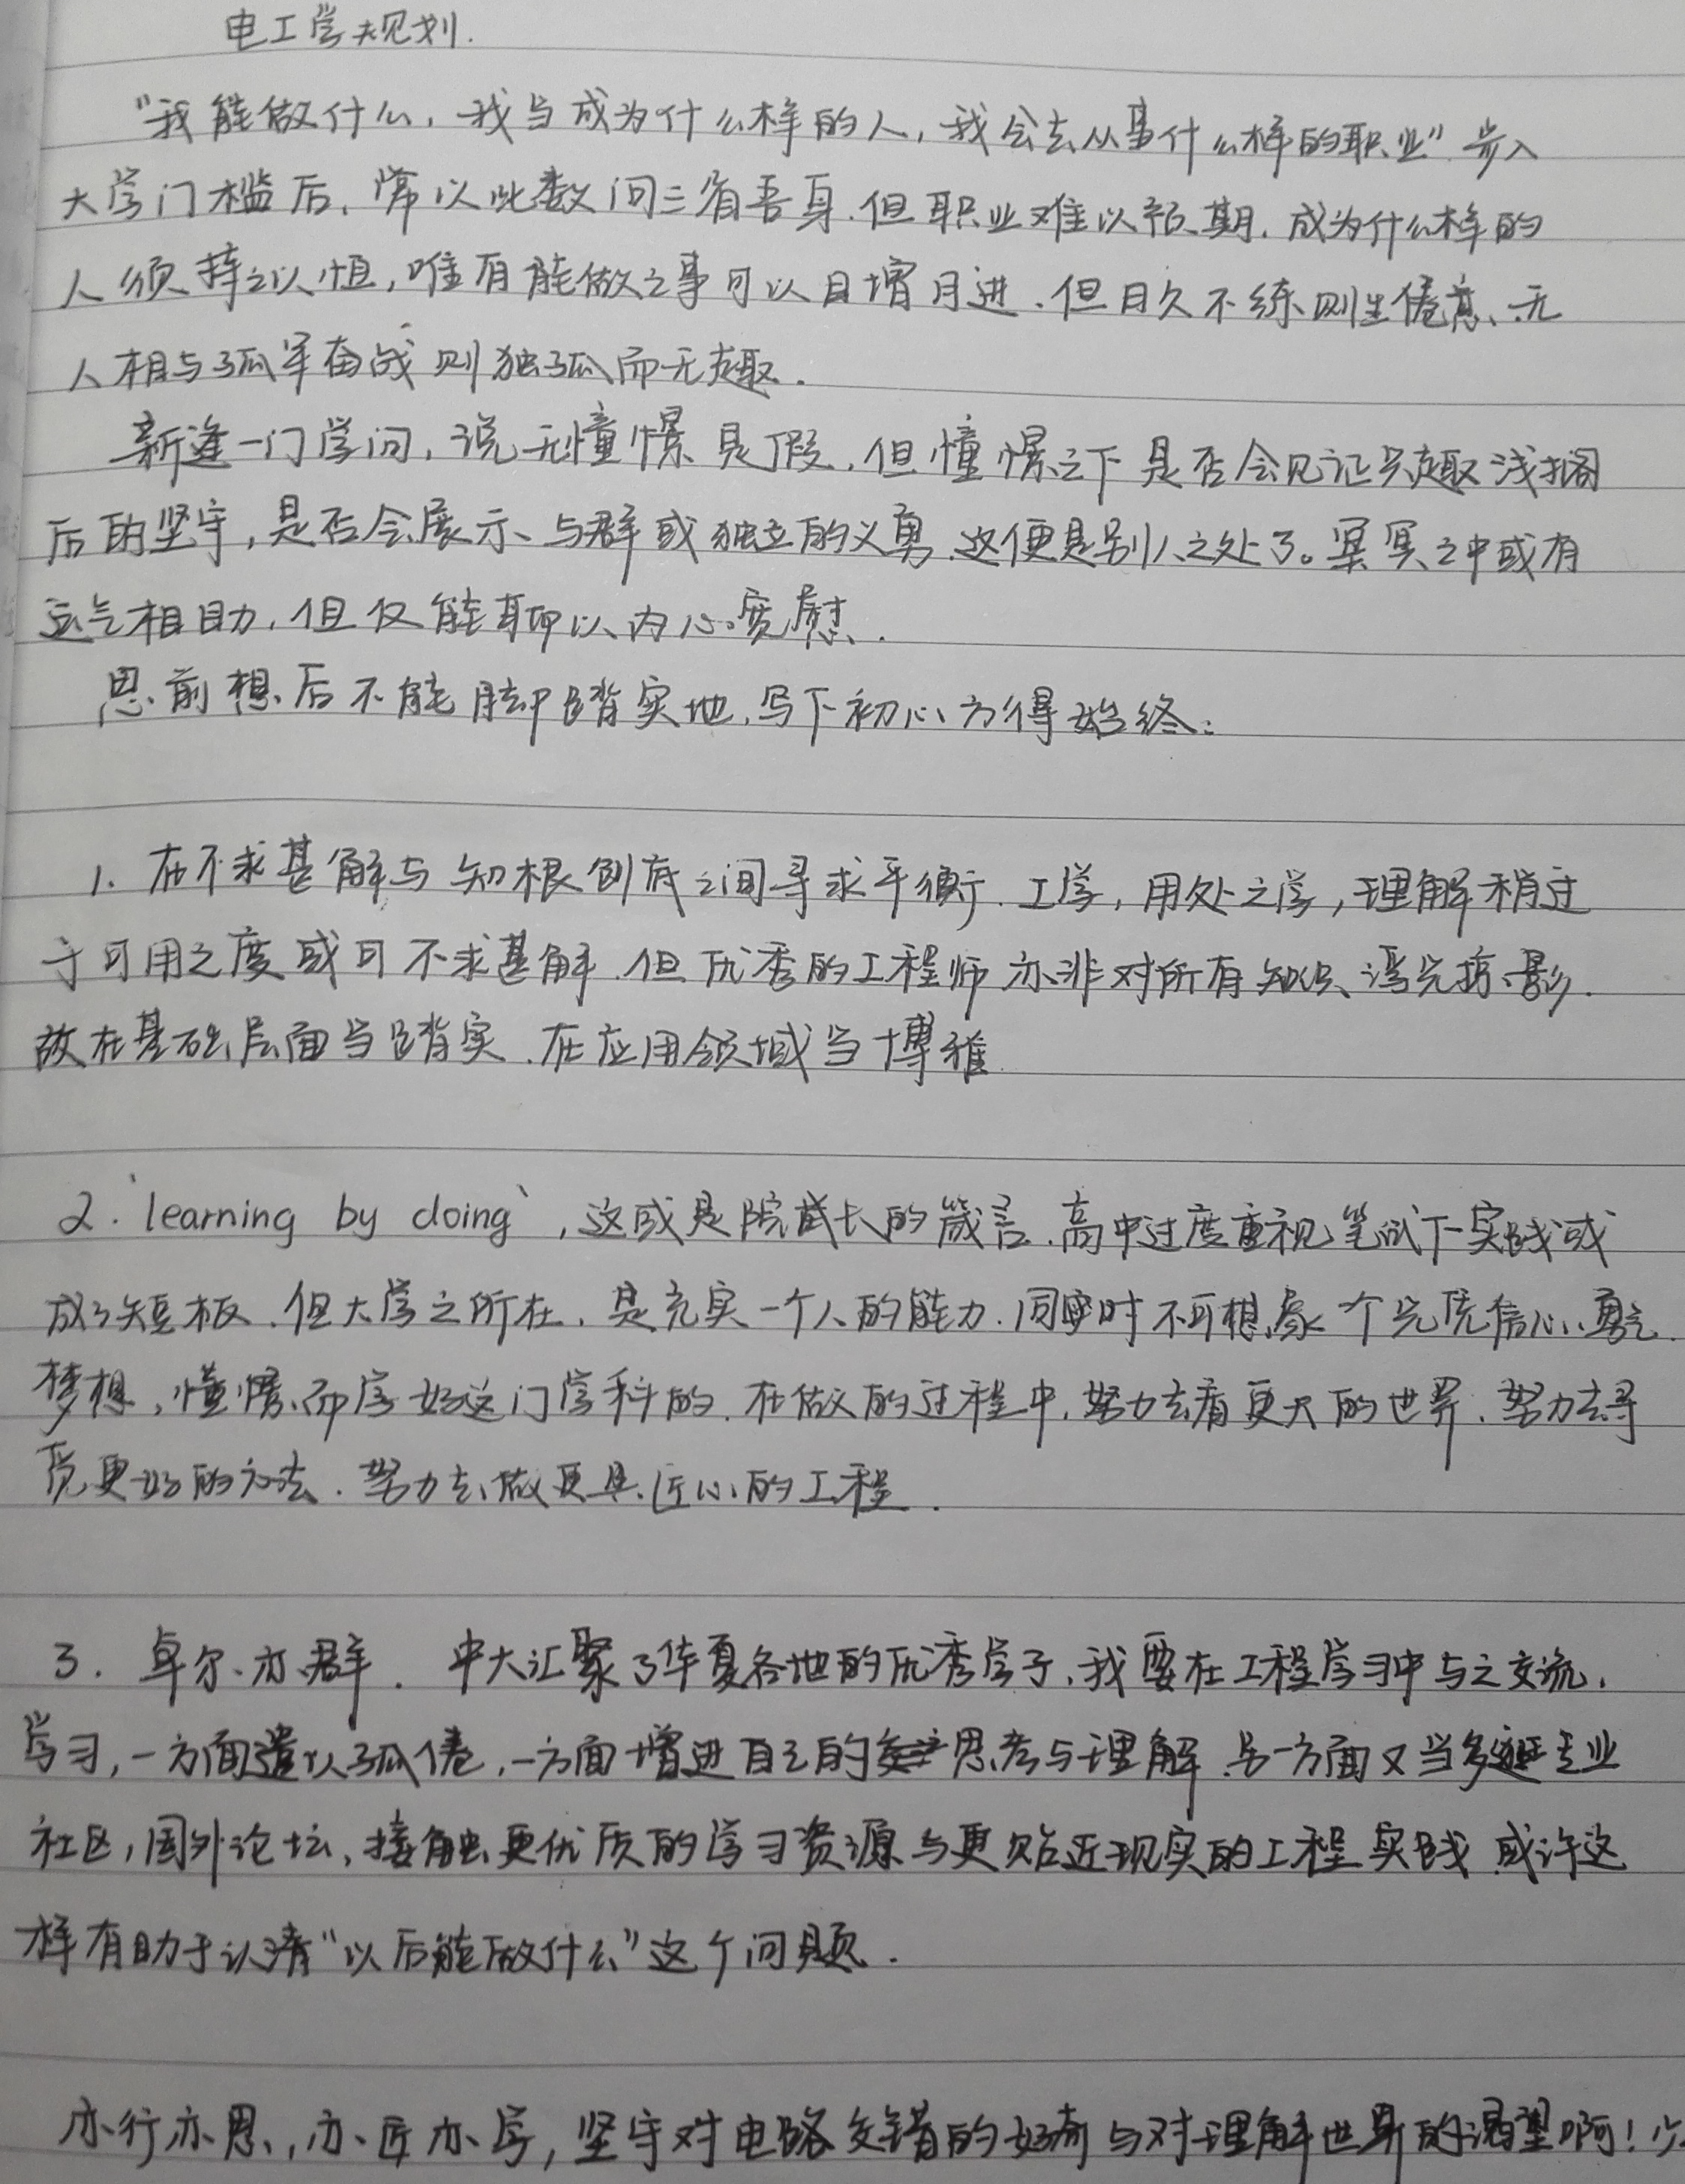 电工学规划.
"我能做什么,我当成为什么样的人,我会去从事什么样的职业"步入
大学门槛后,常以此数问三省吾身.但职业难以预期.成为什么样的
人须择之以恒,唯有能做之事可以日增月进.但日久不练则生倦意、无
人相与孤军奋战则独孤而无趣.
新逢一门学问,说无憧憬是假,但憧憬之下是否会见证兴趣浅搁
后的坚守,是否会展示、与群或独立的义勇.这便是别人之处了。冥冥之中或有
运气相助,但仅能聊以内心宽慰.
思前想后不能脚踏实地,写下初心方得始终:
1. 在不求甚解与知根刨底之间寻求平衡.工学,用处之学,理解稍过
于可用之度或可不求甚解.但优秀的工程师亦非对所有知识浮光掠影.
故在基础层面当踏实.在应用领域当博雅
2. 'learning by doing',这或是院长的箴言.高中过度重视笔试下实践或
成了短板.但大学之所在,是充实一个人的能力.同时不可想象一个光凭信心、勇气.
梦想,憧憬而学好这门学科的.在做的过程中,努力去看更大的世界.努力去寻
觅更好的方法.努力去做更具匠心的工程.
3. 卓尔亦群. 中大汇聚了华夏各地的优秀学子,我要在工程学习中与之交流,
学习,一方面遣以孤倦,一方面增进自己的思考与理解.另一方面又当多逛专业
社区,国外论坛,接触更优质的学习资源与更贴近现实的工程实践.或许这
样有助于认清"以后能做什么"这个问题.
亦行亦思,亦匠亦学,坚守对电路交错的好奇与对理解世界的渴望啊!少